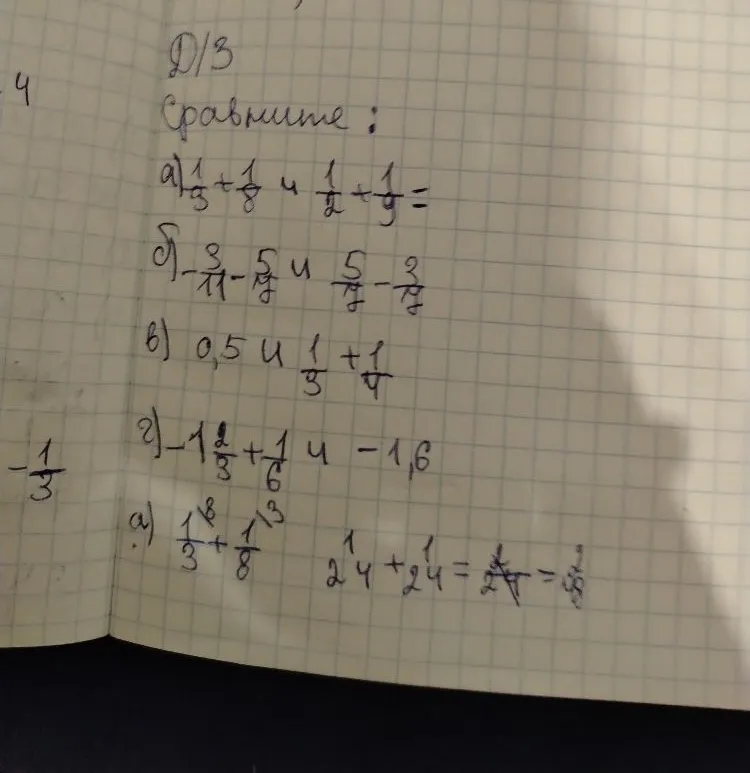 Д/З
4
Сравните:
а) 1/3 + 1/8 и 1/2 + 1/9 =
б) - 3/11 - 5/7 и 5/7 - 3/7
в) 0,5 и 1/3 + 1/4
г) -1 2/3 + 1/6 и -1,6
- 1/3
а) 1\8/3 + 1\3/8 1/24 + 1/24 =